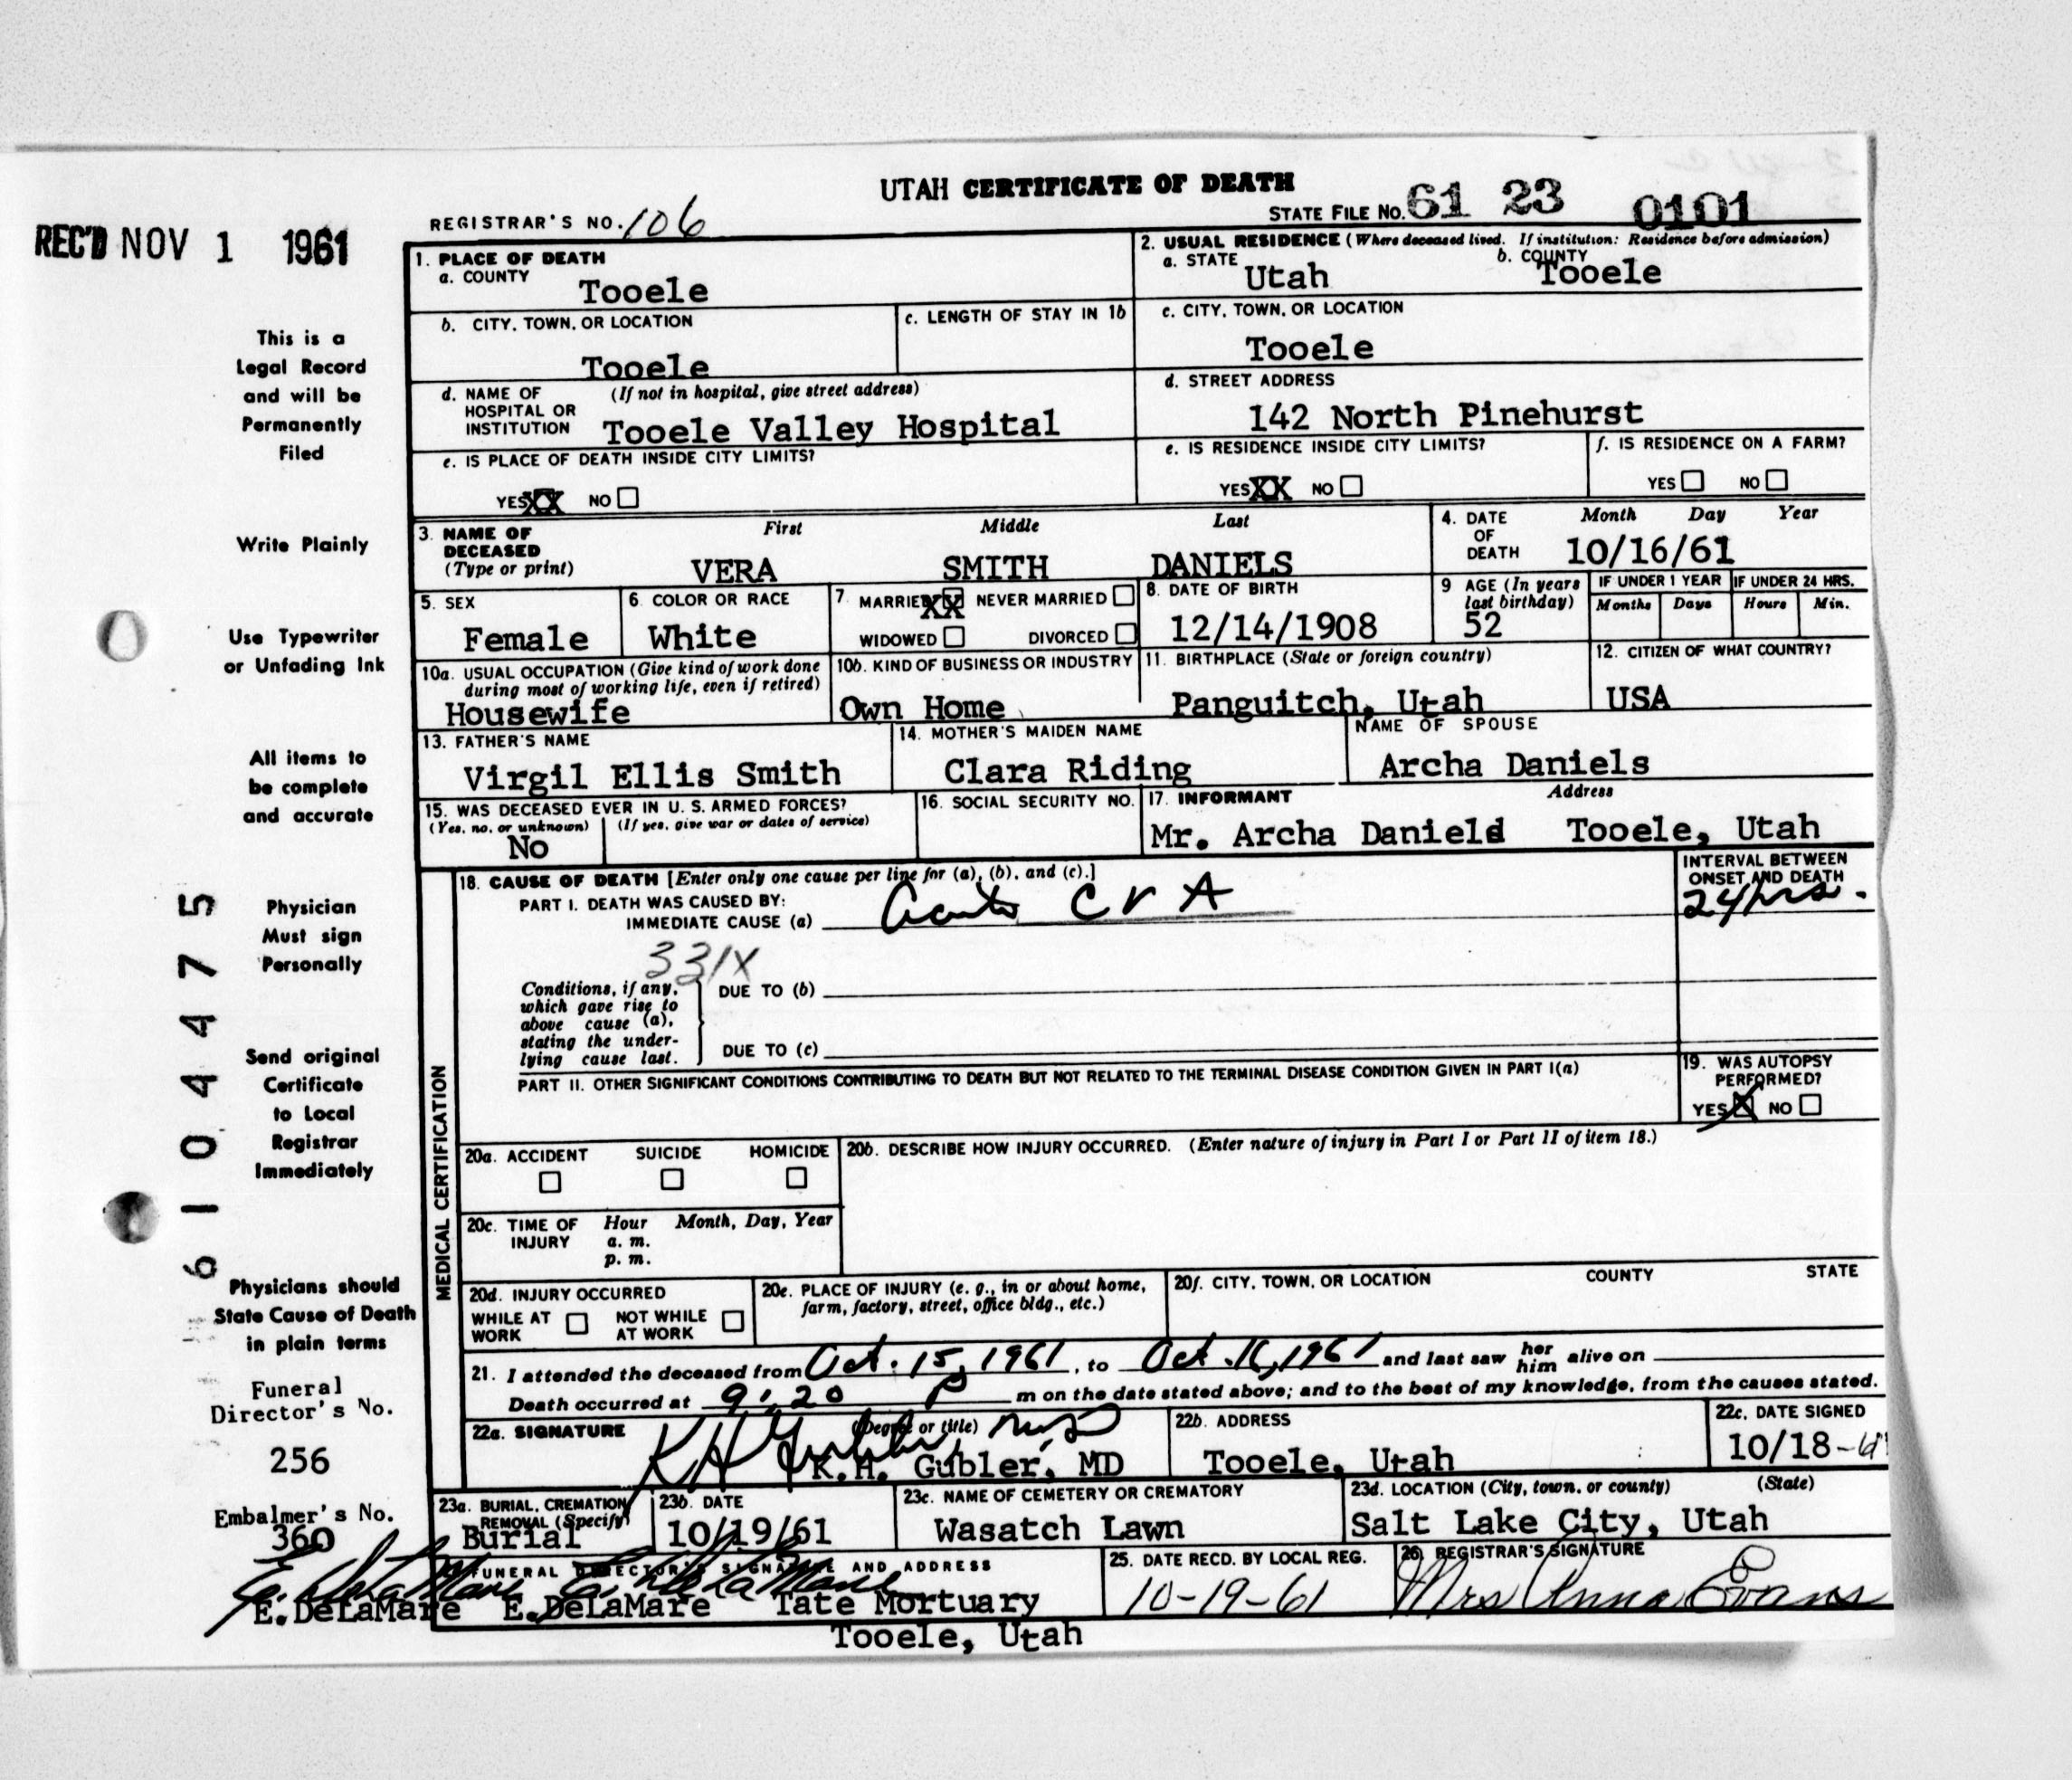 UTAH CERTIFICATE OF DEATH
REGISTRAR'S NO. 106
STATE FILE NO. 61 23 0101
REC'D NOV 1 1961
This is a
Legal Record
and will be
Permanently
Filed
Write Plainly
Use Typewriter
or Unfading Ink
All items to
be complete
and accurate
Physician
Must sign
Personally
Send original
Certificate
to Local
Registrar
Immediately
Physicians should
State Cause of Death
in plain terms
Funeral
Director's No.
256
Embalmer's No.
360
E. DeLaMare
E. DeLaMare
6104475
1. PLACE OF DEATH
a. COUNTY
Tooele
b. CITY, TOWN, OR LOCATION
Tooele
c. LENGTH OF STAY IN 1b
d. NAME OF HOSPITAL OR INSTITUTION (If not in hospital, give street address)
Tooele Valley Hospital
e. IS PLACE OF DEATH INSIDE CITY LIMITS?
YES XX NO
2. USUAL RESIDENCE (Where deceased lived. If institution: Residence before admission)
a. STATE
Utah
b. COUNTY
Tooele
c. CITY, TOWN, OR LOCATION
Tooele
d. STREET ADDRESS
142 North Pinehurst
e. IS RESIDENCE INSIDE CITY LIMITS?
YES XX NO
f. IS RESIDENCE ON A FARM?
YES NO
3. NAME OF DECEASED (Type or print)
First Middle Last
VERA SMITH DANIELS
4. DATE OF DEATH Month Day Year
10/16/61
5. SEX
Female
6. COLOR OR RACE
White
7. MARRIED XX NEVER MARRIED
WIDOWED DIVORCED
8. DATE OF BIRTH
12/14/1908
9 AGE (In years last birthday)
52
IF UNDER 1 YEAR
Months Days
IF UNDER 24 HRS.
Hours Min.
10a. USUAL OCCUPATION (Give kind of work done during most of working life, even if retired)
Housewife
10b. KIND OF BUSINESS OR INDUSTRY
Own Home
11. BIRTHPLACE (State or foreign country)
Panguitch, Utah
12. CITIZEN OF WHAT COUNTRY?
USA
13. FATHER'S NAME
Virgil Ellis Smith
14. MOTHER'S MAIDEN NAME
Clara Riding
NAME OF SPOUSE
Archa Daniels
15. WAS DECEASED EVER IN U. S. ARMED FORCES?
(Yes, no, or unknown) (If yes, give war or dates of service)
No
16. SOCIAL SECURITY NO.
17. INFORMANT Address
Mr. Archa Daniels Tooele, Utah
MEDICAL CERTIFICATION
18. CAUSE OF DEATH [Enter only one cause per line for (a), (b), and (c).]
PART I. DEATH WAS CAUSED BY:
IMMEDIATE CAUSE (a) acute C V A
INTERVAL BETWEEN ONSET AND DEATH
24 hrs.
331X
Conditions, if any, which gave rise to above cause (a), stating the underlying cause last.
DUE TO (b)
DUE TO (c)
PART II. OTHER SIGNIFICANT CONDITIONS CONTRIBUTING TO DEATH BUT NOT RELATED TO THE TERMINAL DISEASE CONDITION GIVEN IN PART I(a)
19. WAS AUTOPSY PERFORMED?
YES X NO
20a. ACCIDENT SUICIDE HOMICIDE
20b. DESCRIBE HOW INJURY OCCURRED. (Enter nature of injury in Part I or Part II of item 18.)
20c. TIME OF INJURY Hour Month, Day, Year
a. m.
p. m.
20d. INJURY OCCURRED
WHILE AT WORK NOT WHILE AT WORK
20e. PLACE OF INJURY (e. g., in or about home, farm, factory, street, office bldg., etc.)
20f. CITY, TOWN, OR LOCATION COUNTY STATE
21. I attended the deceased from Oct. 15, 1961, to Oct. 16, 1961 and last saw her him alive on
Death occurred at 9:20 P m on the date stated above; and to the best of my knowledge, from the causes stated.
22a. SIGNATURE (Degree or title)
K H Gubler, MD
K.H. Gubler, MD
22b. ADDRESS
Tooele, Utah
22c. DATE SIGNED
10/18-61
23a. BURIAL, CREMATION, REMOVAL (Specify)
Burial
23b. DATE
10/19/61
23c. NAME OF CEMETERY OR CREMATORY
Wasatch Lawn
23d. LOCATION (City, town, or county) (State)
Salt Lake City, Utah
FUNERAL DIRECTOR'S SIGNATURE AND ADDRESS
E. DeLaMare
E. DeLaMare Tate Mortuary
Tooele, Utah
25. DATE RECD. BY LOCAL REG.
10-19-61
26. REGISTRAR'S SIGNATURE
Mrs Anna Evans